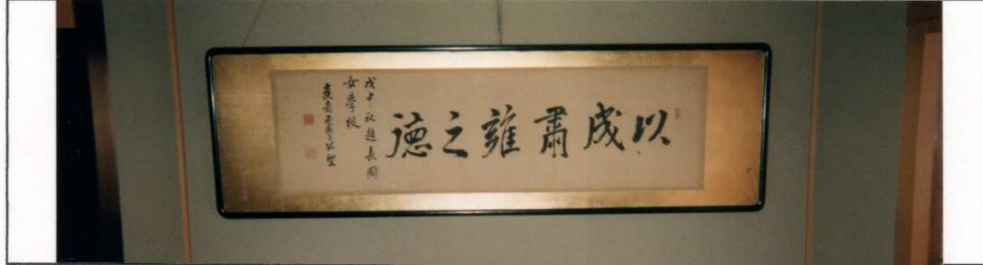 以成肅雍之德
戊申秋題長岡
女學校